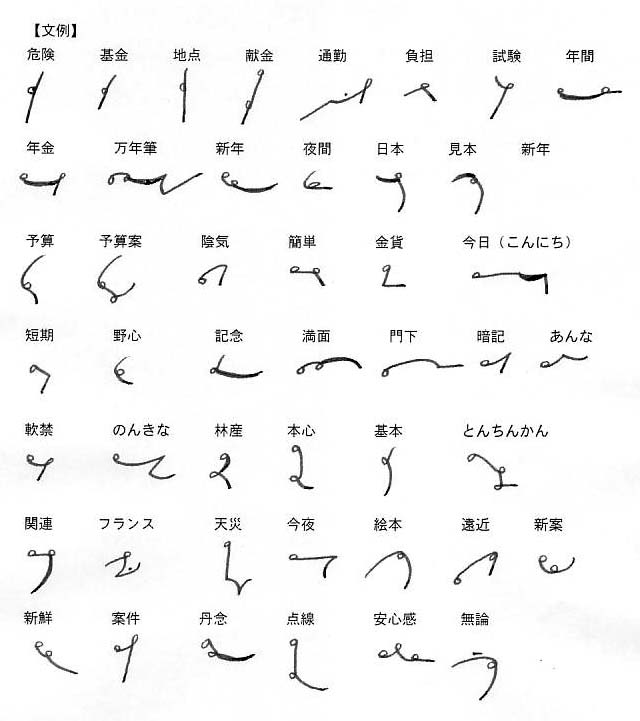 【文例】
危険 基金 地点 献金 通勤 負担 試験 年間
年金 万年筆 新年 夜間 日本 見本 新年
予算 予算案 陰気 簡単 金貨 今日（こんにち）
短期 野心 記念 満面 門下 暗記 あんな
軟禁 のんきな 林産 本心 基本 とんちんかん
関連 フランス 天災 今夜 絵本 遠近 新案
新鮮 案件 丹念 点線 安心感 無論